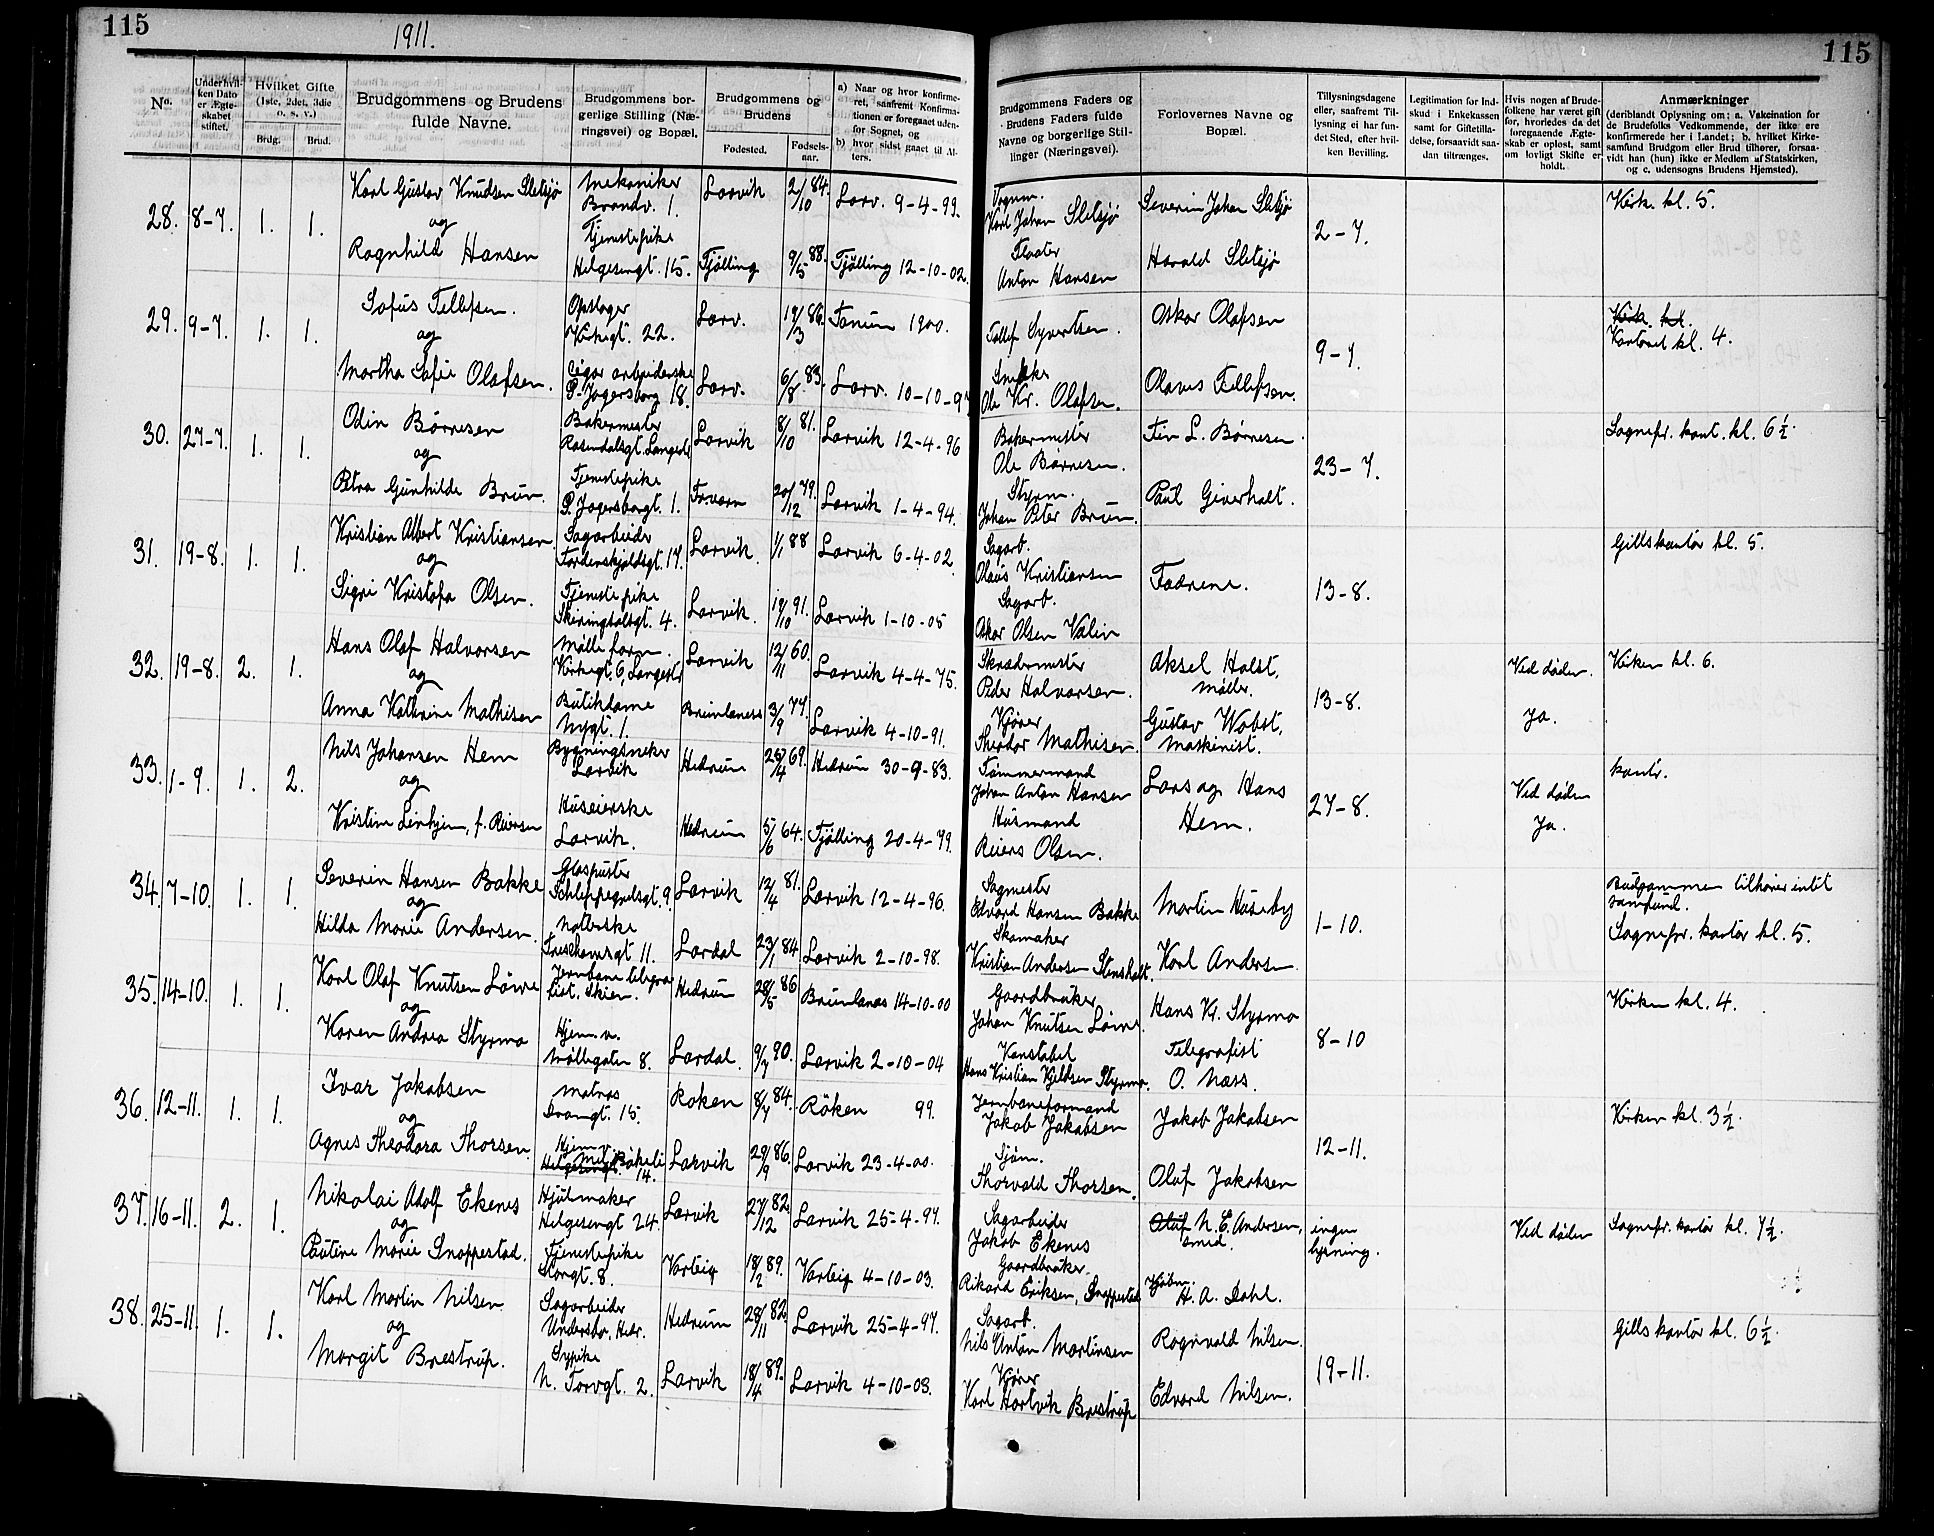 115
1911.
115
No.
Underhvil-
ken Dato
er Ægte-
skabet
stiftet.
Hvilket Gifte
(1ste, 2det, 3die
o. s. v.)
Brdg.
Brud.
Brudgommens og Brudens
fulde Navne.
Brudgommens bor-
gerlige Stilling (Næ-
ringsvei) og Bopæl.
Brudgommens og
Brudens
Fødested.
Fødsels-
aar.
a) Naar og hvor konfirme-
ret, saafremt Konfirma-
tionen er foregaaet uden-
for Sognet, og
b) hvor sidst gaaet til Al-
ters.
Brudgommens Faders og
Brudens Faders fulde
Navne og borgerlige Stil-
linger (Næringsvei).
Forlovernes Navne og
Bopæl.
Tillysningsdagene
eller, saafremt Til-
lysning ei har fun-
det Sted, efter hvil-
ken Bevilling.
Legitimation for Ind-
skud i Enkekassen
samt for Giftetilla-
delse, forsaavidt saa-
dan tiltrænges.
Hvis nogen af Brude-
folkene har været gift
før, hvorledes da det
foregaaende Ægte-
skab er opløst, samt
om lovligt Skifte er
holdt.
Anmærkninger
(deriblandt Oplysning om: a. Vakcination for
de Brudefolks Vedkommende, der ikke ere
konfirmerede her i Landet; b. hvilket Kirke-
samfund Brudgom eller Brud tilhører, forsaa-
vidt han (hun) ikke er Medlem af Statskirken,
og c. udensogns Brudens Hjemsted).
28. 8-7. 1. 1. Karl Gustav Knudsen Sletsjø Mekaniker Brandv. 1. Larvik 2/10 84. Larv. 9-4-99. Vognm. Karl Johan Sletsjø Severin Johan Sletsjø 2-7. Kirk. kl. 5.
og
Ragnhild Hansen Tjenestepike Helgesengt. 15. Tjølling 9/5 88. Tjølling 12-10-02. Fløter Anton Hansen Harald Sletsjø
29. 9-7. 1. 1. Sofus Tellefsen. Opslager Kirkegt. 22. Larv. 19/3 86. Tanum 1900. Tellef Syvertsen. Oskar Olafsen 9-7. Kirk. kl. Kontoret kl. 4.
og
Martha Sofie Olafsen. Cigar arbeiderske P. Jagersborg 18. Larv. 6/8 83. Larv. 10-10-97 Snekker Ole Kr. Olafsen. Olaves Tellefsen.
30. 27-7. 1. 1. Odin Børresen Bakermester Rosendalsgt. Langestr Larvik 8/10 81. Larvik 12-4-96 Bakermester Ole Børresen. Finn L. Børresen. 23-7. Sognepr. kont. kl. 6½.
og
Petra Gunhilde Brun. Tjenestepike P. Jagersborgt. 1. Torvørn 20/12 79. Larvik 1-4-94. Styrm. Johan Peter Brun. Paul Giverholt.
31. 19-8. 1. 1. Kristian Albert Kristiansen Sagarbeider Tordenskjoldsgt. 17. Larvik. 1/1 88 Larvik 6-4-02. Sagarb. Olavus Kristiansen Fædrene. 13-8. Gills kantor kl. 5.
og
Sigri Kristofa Olsen. Tjenestepike Skiringsalsgt. 4. Larvik. 19/10 91. Larvik 1-10-05 Sagarb. Oskar Olsen Valin
32. 19-8. 2. 1. Hans Olaf Halvorsen Mølleform. Kirkegt. 6, Langestr Larvik 12/11 60. Larvik 4-4-75. Skrædermester Peder Halvorsen. Aksel Holst, Møller. 13-8. Ved døden. Ja. Kirken kl. 6.
og
Anna Kathrine Mathisen Butikdame Nygt. 1. Brunlanæs 3/9 77. Larvik 4-10-91. Kjører Theodor Mathisen. Gustav Wobst, Maskinist.
33. 1-9. 1. 2. Nils Johansen Hem Bygningssneker Larvik Hedrum 28/4 69. Hedrum 30-9-83. Tømmermand Johan Anton Hansen Lars og Hans Hem. 27-8. Ved døden Ja. kontr.
og
Kristine Linhjem, f. Reiersen Huseierske Larvik. Hedrum 5/6 64. Tjølling 20-4-79. Husmand Reiers Olsen.
34. 7-10. 1. 1. Severin Hansen Bakke Glaspuster Schleppegrelsgt. 9. Larvik 12/4 81. Larvik 12-4-96. Sagmester Edvard Hansen Bakke Martin Huseby 1-10. Brudgommen tilhører intet samfund.
og
Hilda Marie Andersen. Væverske Treschowsgt 11. Lardal 23/1 84 Larvik 2-10-98. Skomaker Kristian Andersen Stensholt. Karl Andersen. Sognepr. kantor kl. 5.
35. 14-10. 1. 1. Karl Olaf Knutsen Løwe Jernbane telegrafist. Skien. Hedrum 28/5 86 Brunlanæs 14-10-00 Gaardbruker Johan Knutsen Løwe Hans Kr. Styrmo 8-10 Kirken kl. 4.
og
Karen Andrea Styrmo Hjem. v. Møllegaten 8. Lardal. 9/7 90. Larvik 2-10-04 Konstabel Hans Kristian Kjeldsen Styrmo. Telegrafist O. Næss.
36. 12-11. 1. 1. Ivar Jakobsen Matros Dramgt. 15. Røken 8/7 84. Røken 99. Jernbaneformand Jakob Jakobsen Jakob Jakobsen 12-11. Kirken kl. 3½.
og
Agnes Theodora Thorsen. Hjemv. Helgesengt. 14. Larvik 29/9 86. Larvik 23-4-00. Sjøm. Thorvald Thorsen. Olaf Jakobsen
37. 16-11. 2. 1. Nikolai Adolf Ekenes Hjulmaker Helgesengt 24. Larvik 27/12 82. Larvik 25-4-97. Sagarbeider Jakob Ekenes Oluf N. E. Andersen, smed. ingen lysning. Ved døden Sognepr. kantor kl. 7½.
og
Pauline Marie Snoppestad. Tjenestepike Storgt. 8. Varteig 18/2 89. Varteig 4-10-03. Gaardbruker. Rikard Eriksen, Snoppestad Kjøbm. H. A. Dahl.
38. 25-11. 1. 1. Karl Martin Nilsen Sagarbeider Undersbo, Hedr. Hedrum 28/11 82. Larvik 25-4-97. Sagarb. Nils Anton Martinsen Ragnvald Nilsen. 19-11. Gills kantor kl. 6½.
og
Margit Brestrup. Sypike N. Torvgt. 2. Larvik 18/4 89. Larvik 4-10-03. Kjører Karl Hartvik Brestrup Edvard Nilsen.